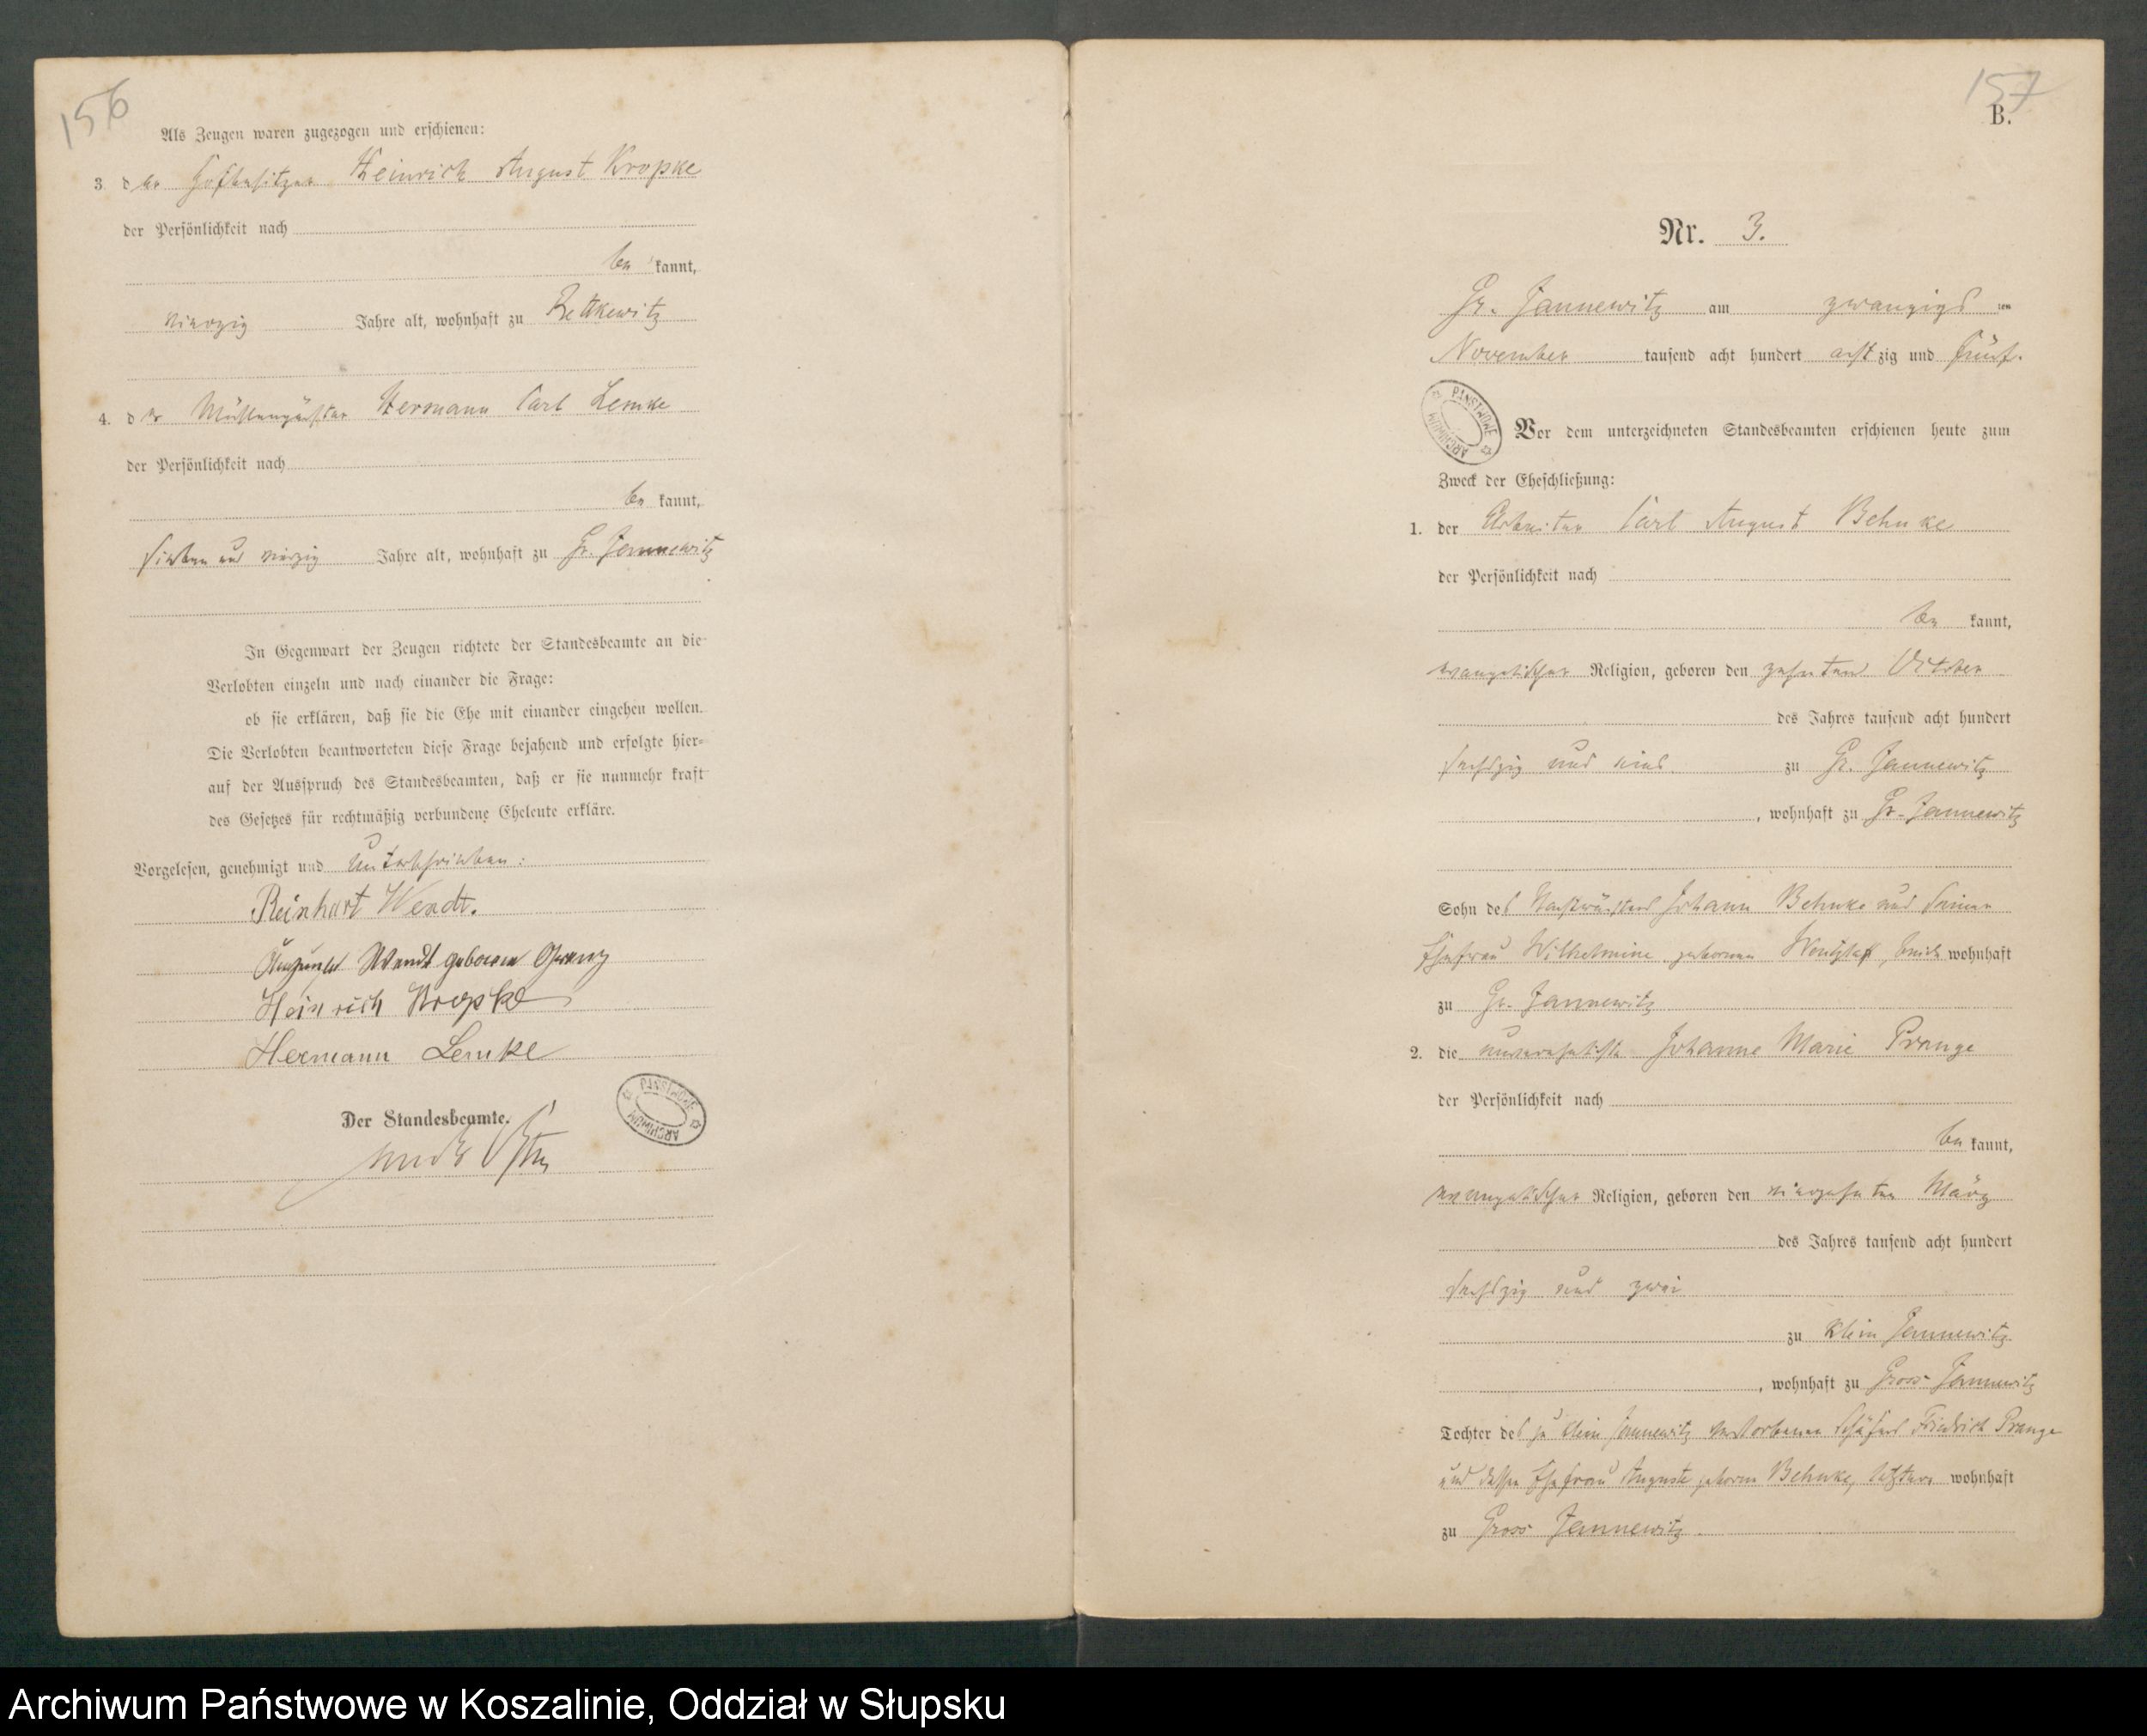 156
Als Zeugen waren zugezogen und erschienen:
3 der Hofbesitzer Heinrich August Kropke
der Persönlichkeit nach
be kannt,
vierzig Jahre alt, wohnhaft zu Rettkewitz
4. der Heinrich Hermann Carl Lemke
der Persönlichkeit nach
be kannt,
sieben und vierzig Jahre alt, wohnhaft zu Gr. Jannewitz
In Gegenwart der Zeugen richtete der Standesbeamte an die
Verlobten einzeln und nach einander die Frage:
ob sie erklären, daß sie die Ehe mit einander eingehen wollen.
Die Verlobten beantworteten diese Frage bejahend und erfolgte hier-
auf der Ausspruch des Standesbeamten, daß er sie nunmehr kraft
des Gesetzes für rechtmäßig verbundene Eheleute erkläre.
Vorgelesen, genehmigt und unterschrieben:
Reinhart Wendt.
Auguste Wendt geborene
Heinrich Kropke
Hermann Lemke
Der Standesbeamte.
PAŃSTWOWE ARCHIWUM
157
B.
Nr. 3.
Gr. Jannewitz am zwanzigs ten
November tausend acht hundert acht zig und fünf.
PAŃSTWOWE ARCHIWUM
Vor dem unterzeichneten Standesbeamten erschienen heute zum
Zweck der Eheschließung:
1. der Arbeiter Carl August Behnke
der Persönlichkeit nach
be kannt,
evangelischer Religion, geboren den zehnten October
des Jahres tausend acht hundert
sechszig und eins. zu Gr. Jannewitz
, wohnhaft zu Gr. Jannewitz
Sohn des Johann Behnke und seiner
Ehefrau Wilhelmine geborenen beide wohnhaft
zu Gr. Jannewitz
2. die unverehelichte Johanne Marie Prange
der Persönlichkeit nach
be kannt,
evangelischer Religion, geboren den vierzehnten März
des Jahres tausend acht hundert
sechszig und zwei
zu Klein Jannewitz
, wohnhaft zu Gross Jannewitz
Tochter des zu Klein Jannewitz verstorbenen Schäfers Friedrich Prange
und dessen Ehefrau Auguste geborne Behnke, letztere wohnhaft
zu Gross Jannewitz
Archiwum Państwowe w Koszalinie, Oddział w Słupsku